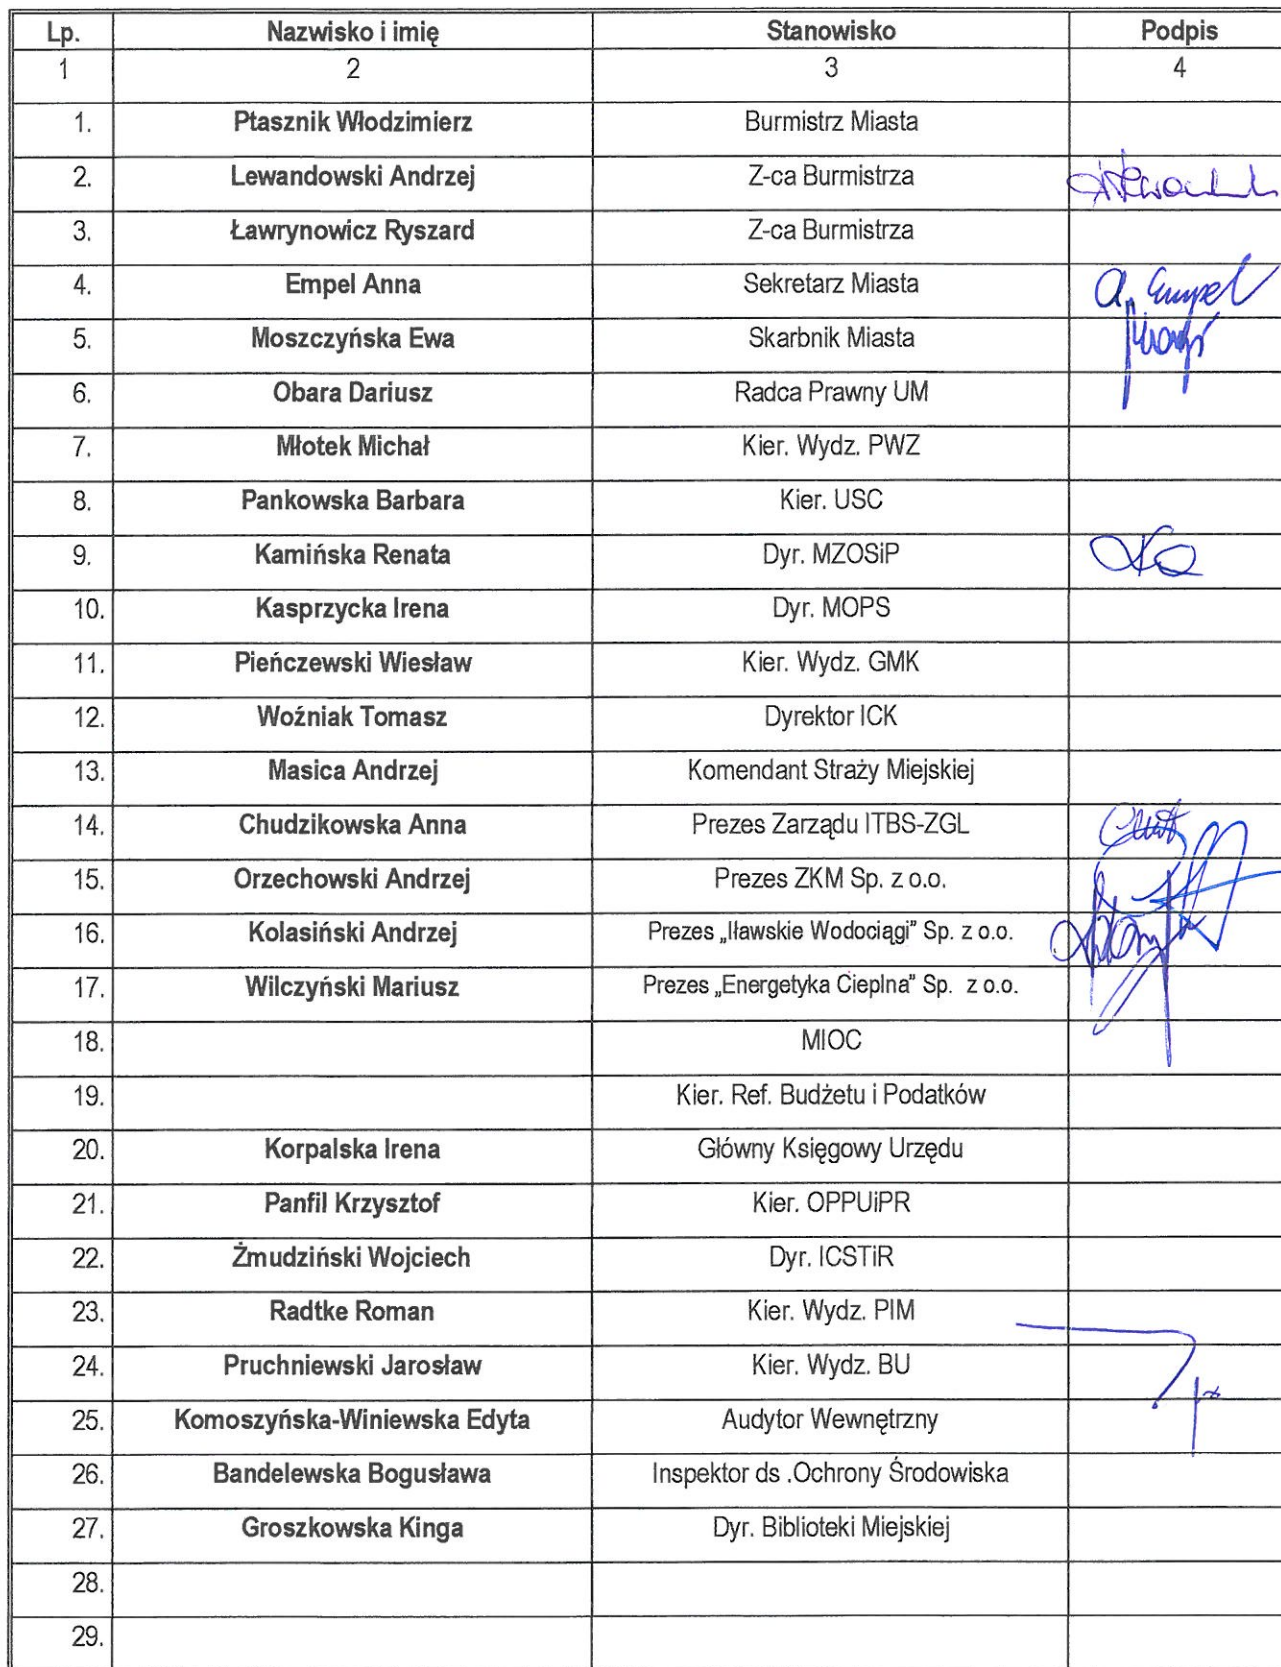 Lp. Nazwisko i imię Stanowisko Podpis
1 2 3 4
1. Ptasznik Włodzimierz Burmistrz Miasta
2. Lewandowski Andrzej Z-ca Burmistrza
3. Ławrynowicz Ryszard Z-ca Burmistrza
4. Empel Anna Sekretarz Miasta A. Empel
5. Moszczyńska Ewa Skarbnik Miasta
6. Obara Dariusz Radca Prawny UM
7. Młotek Michał Kier. Wydz. PWZ
8. Pankowska Barbara Kier. USC
9. Kamińska Renata Dyr. MZOSiP
10. Kasprzycka Irena Dyr. MOPS
11. Pieńczewski Wiesław Kier. Wydz. GMK
12. Woźniak Tomasz Dyrektor ICK
13. Masica Andrzej Komendant Straży Miejskiej
14. Chudzikowska Anna Prezes Zarządu ITBS-ZGL
15. Orzechowski Andrzej Prezes ZKM Sp. z o.o.
16. Kolasiński Andrzej Prezes „Iławskie Wodociągi” Sp. z o.o.
17. Wilczyński Mariusz Prezes „Energetyka Cieplna” Sp. z o.o.
18. MIOC
19. Kier. Ref. Budżetu i Podatków
20. Korpalska Irena Główny Księgowy Urzędu
21. Panfil Krzysztof Kier. OPPUiPR
22. Żmudziński Wojciech Dyr. ICSTiR
23. Radtke Roman Kier. Wydz. PIM
24. Pruchniewski Jarosław Kier. Wydz. BU
25. Komoszyńska-Winiewska Edyta Audytor Wewnętrzny
26. Bandelewska Bogusława Inspektor ds .Ochrony Środowiska
27. Groszkowska Kinga Dyr. Biblioteki Miejskiej
28.
29.